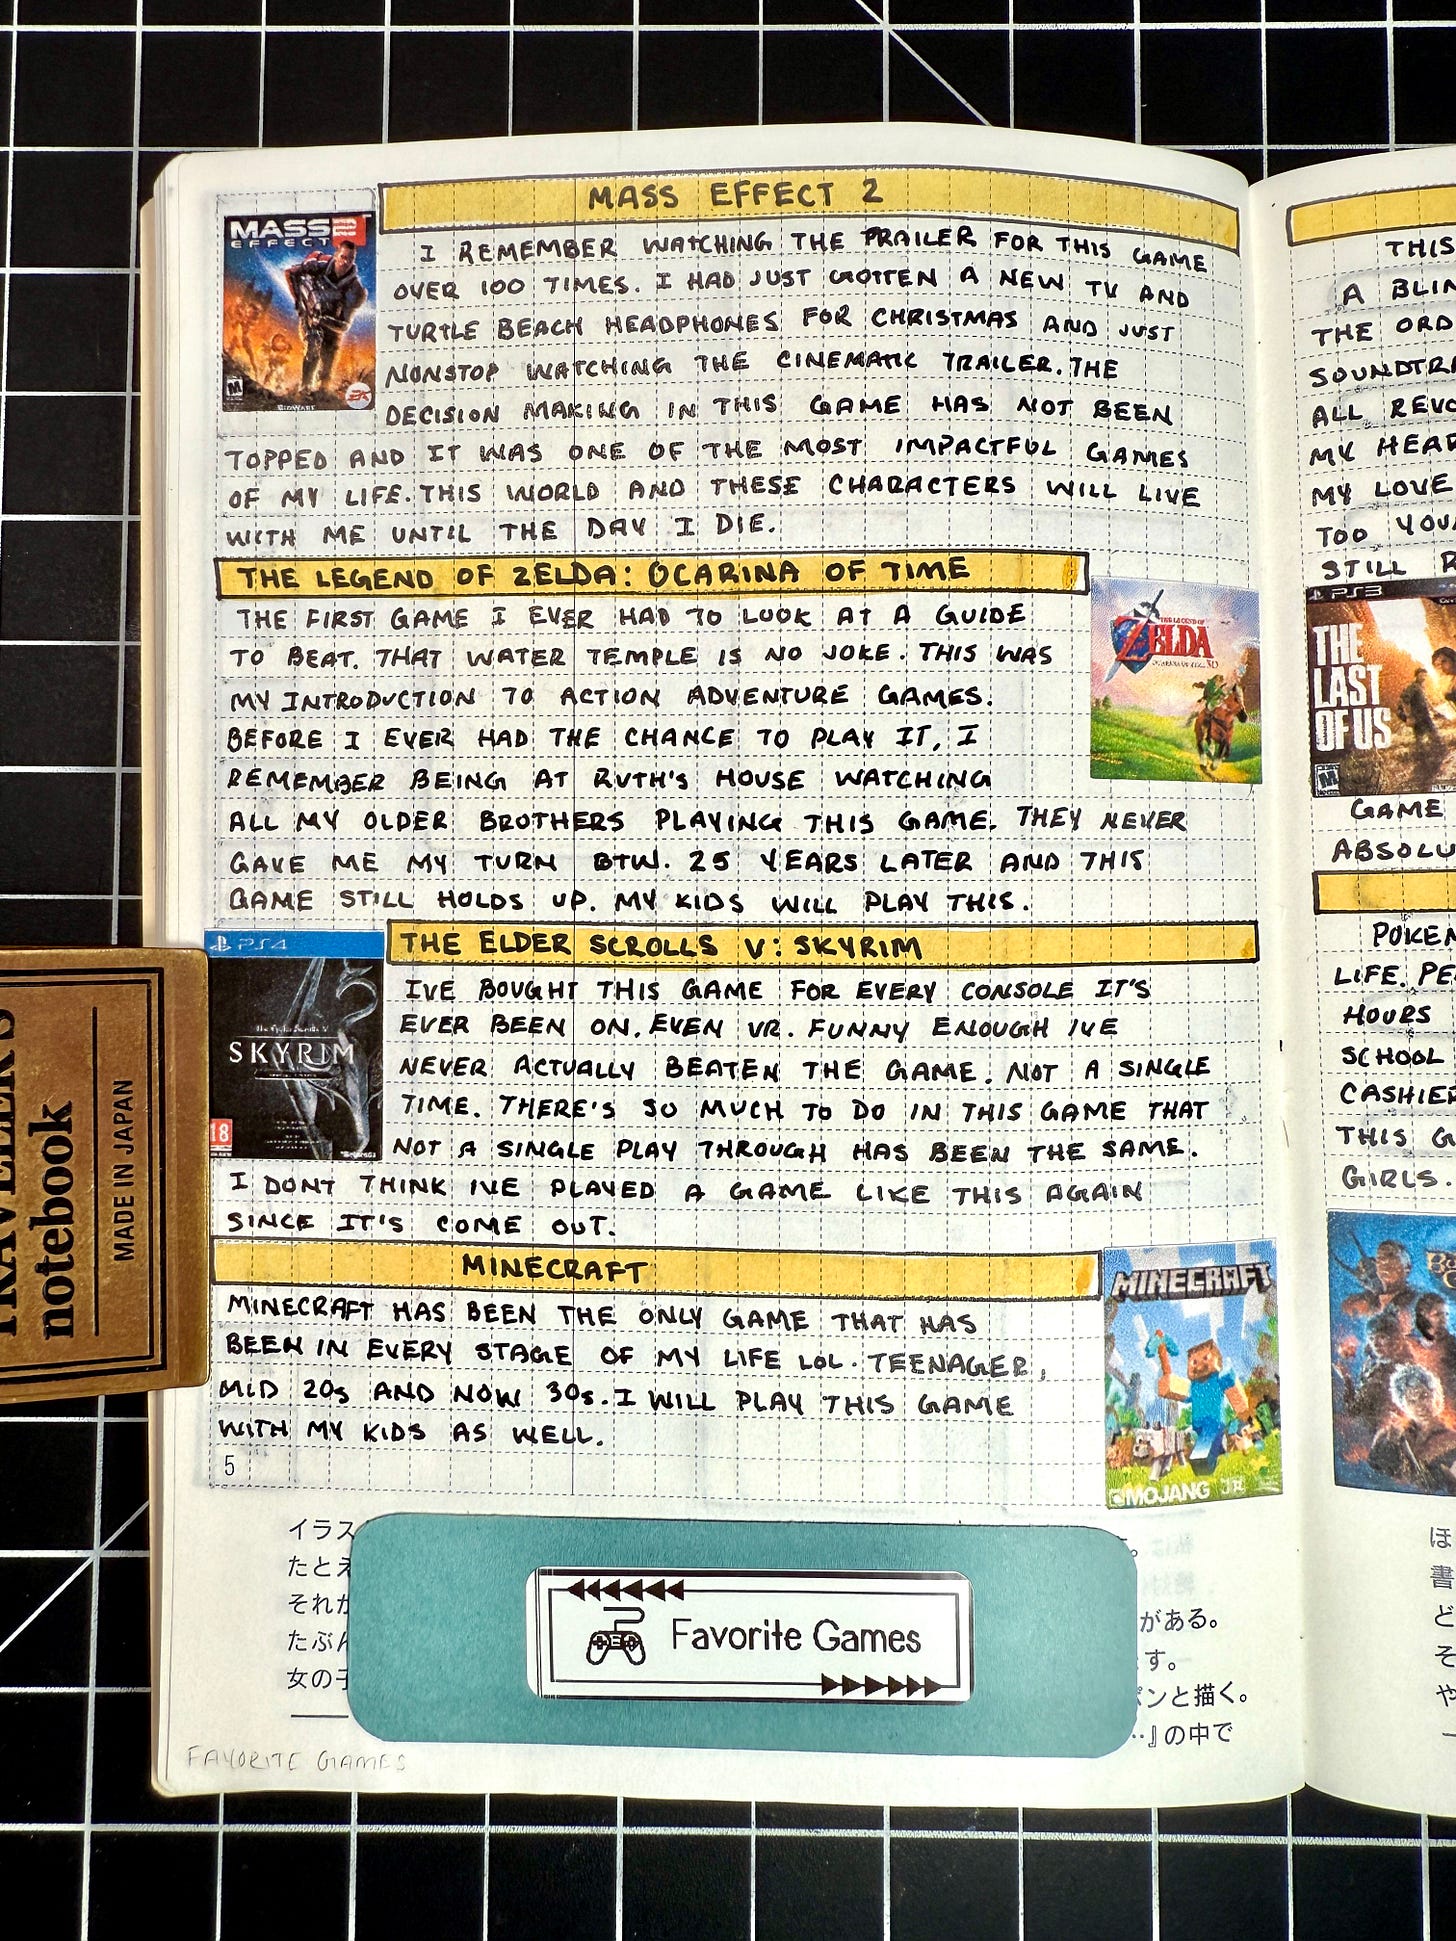 MASS EFFECT 2
MASS EFFECT 2
BIOWARE
EA
M
I REMEMBER WATCHING THE TRAILER FOR THIS GAME
OVER 100 TIMES. I HAD JUST GOTTEN A NEW TV AND
TURTLE BEACH HEADPHONES FOR CHRISTMAS AND JUST
NONSTOP WATCHING THE CINEMATIC TRAILER. THE
DECISION MAKING IN THIS GAME HAS NOT BEEN
TOPPED AND IT WAS ONE OF THE MOST IMPACTFUL GAMES
OF MY LIFE. THIS WORLD AND THESE CHARACTERS WILL LIVE
WITH ME UNTIL THE DAY I DIE.
THE LEGEND OF ZELDA: OCARINA OF TIME
THE LEGEND OF
ZELDA
OCARINA OF TIME 3D
THE FIRST GAME I EVER HAD TO LOOK AT A GUIDE
TO BEAT. THAT WATER TEMPLE IS NO JOKE. THIS WAS
MY INTRODUCTION TO ACTION ADVENTURE GAMES.
BEFORE I EVER HAD THE CHANCE TO PLAY IT, I
REMEMBER BEING AT RUTH'S HOUSE WATCHING
ALL MY OLDER BROTHERS PLAYING THIS GAME. THEY NEVER
GAVE ME MY TURN BTW. 25 YEARS LATER AND THIS
GAME STILL HOLDS UP. MY KIDS WILL PLAY THIS.
PS4
The Elder Scrolls V
SKYRIM
18
Bethesda
THE ELDER SCROLLS V: SKYRIM
IVE BOUGHT THIS GAME FOR EVERY CONSOLE IT'S
EVER BEEN ON. EVEN VR. FUNNY ENOUGH IVE
NEVER ACTUALLY BEATEN THE GAME. NOT A SINGLE
TIME. THERE'S SO MUCH TO DO IN THIS GAME THAT
NOT A SINGLE PLAY THROUGH HAS BEEN THE SAME.
I DONT THINK IVE PLAYED A GAME LIKE THIS AGAIN
SINCE IT'S COME OUT.
MINECRAFT
MINECRAFT
MOJANG
MINECRAFT HAS BEEN THE ONLY GAME THAT HAS
BEEN IN EVERY STAGE OF MY LIFE LOL. TEENAGER,
MID 20s AND NOW 30s. I WILL PLAY THIS GAME
WITH MY KIDS AS WELL.
5
イラス
たとえ
それか
たぶん
女の子
。
がある。
す。
ンと描く。
…』の中で
Favorite Games
FAVORITE GAMES
TRAVELER'S
notebook
MADE IN JAPAN
THIS
A BLIN
THE ORD
SOUNDTRA
ALL REVO
MY HEAR
MY LOVE
TOO YOU
STILL R
PS3
THE
LAST
OF US
M
GAME
ABSOLU
POKEM
LIFE. PE
HOURS
SCHOOL
CASHIER
THIS G
GIRLS.
ほ
書
ど
そ
や